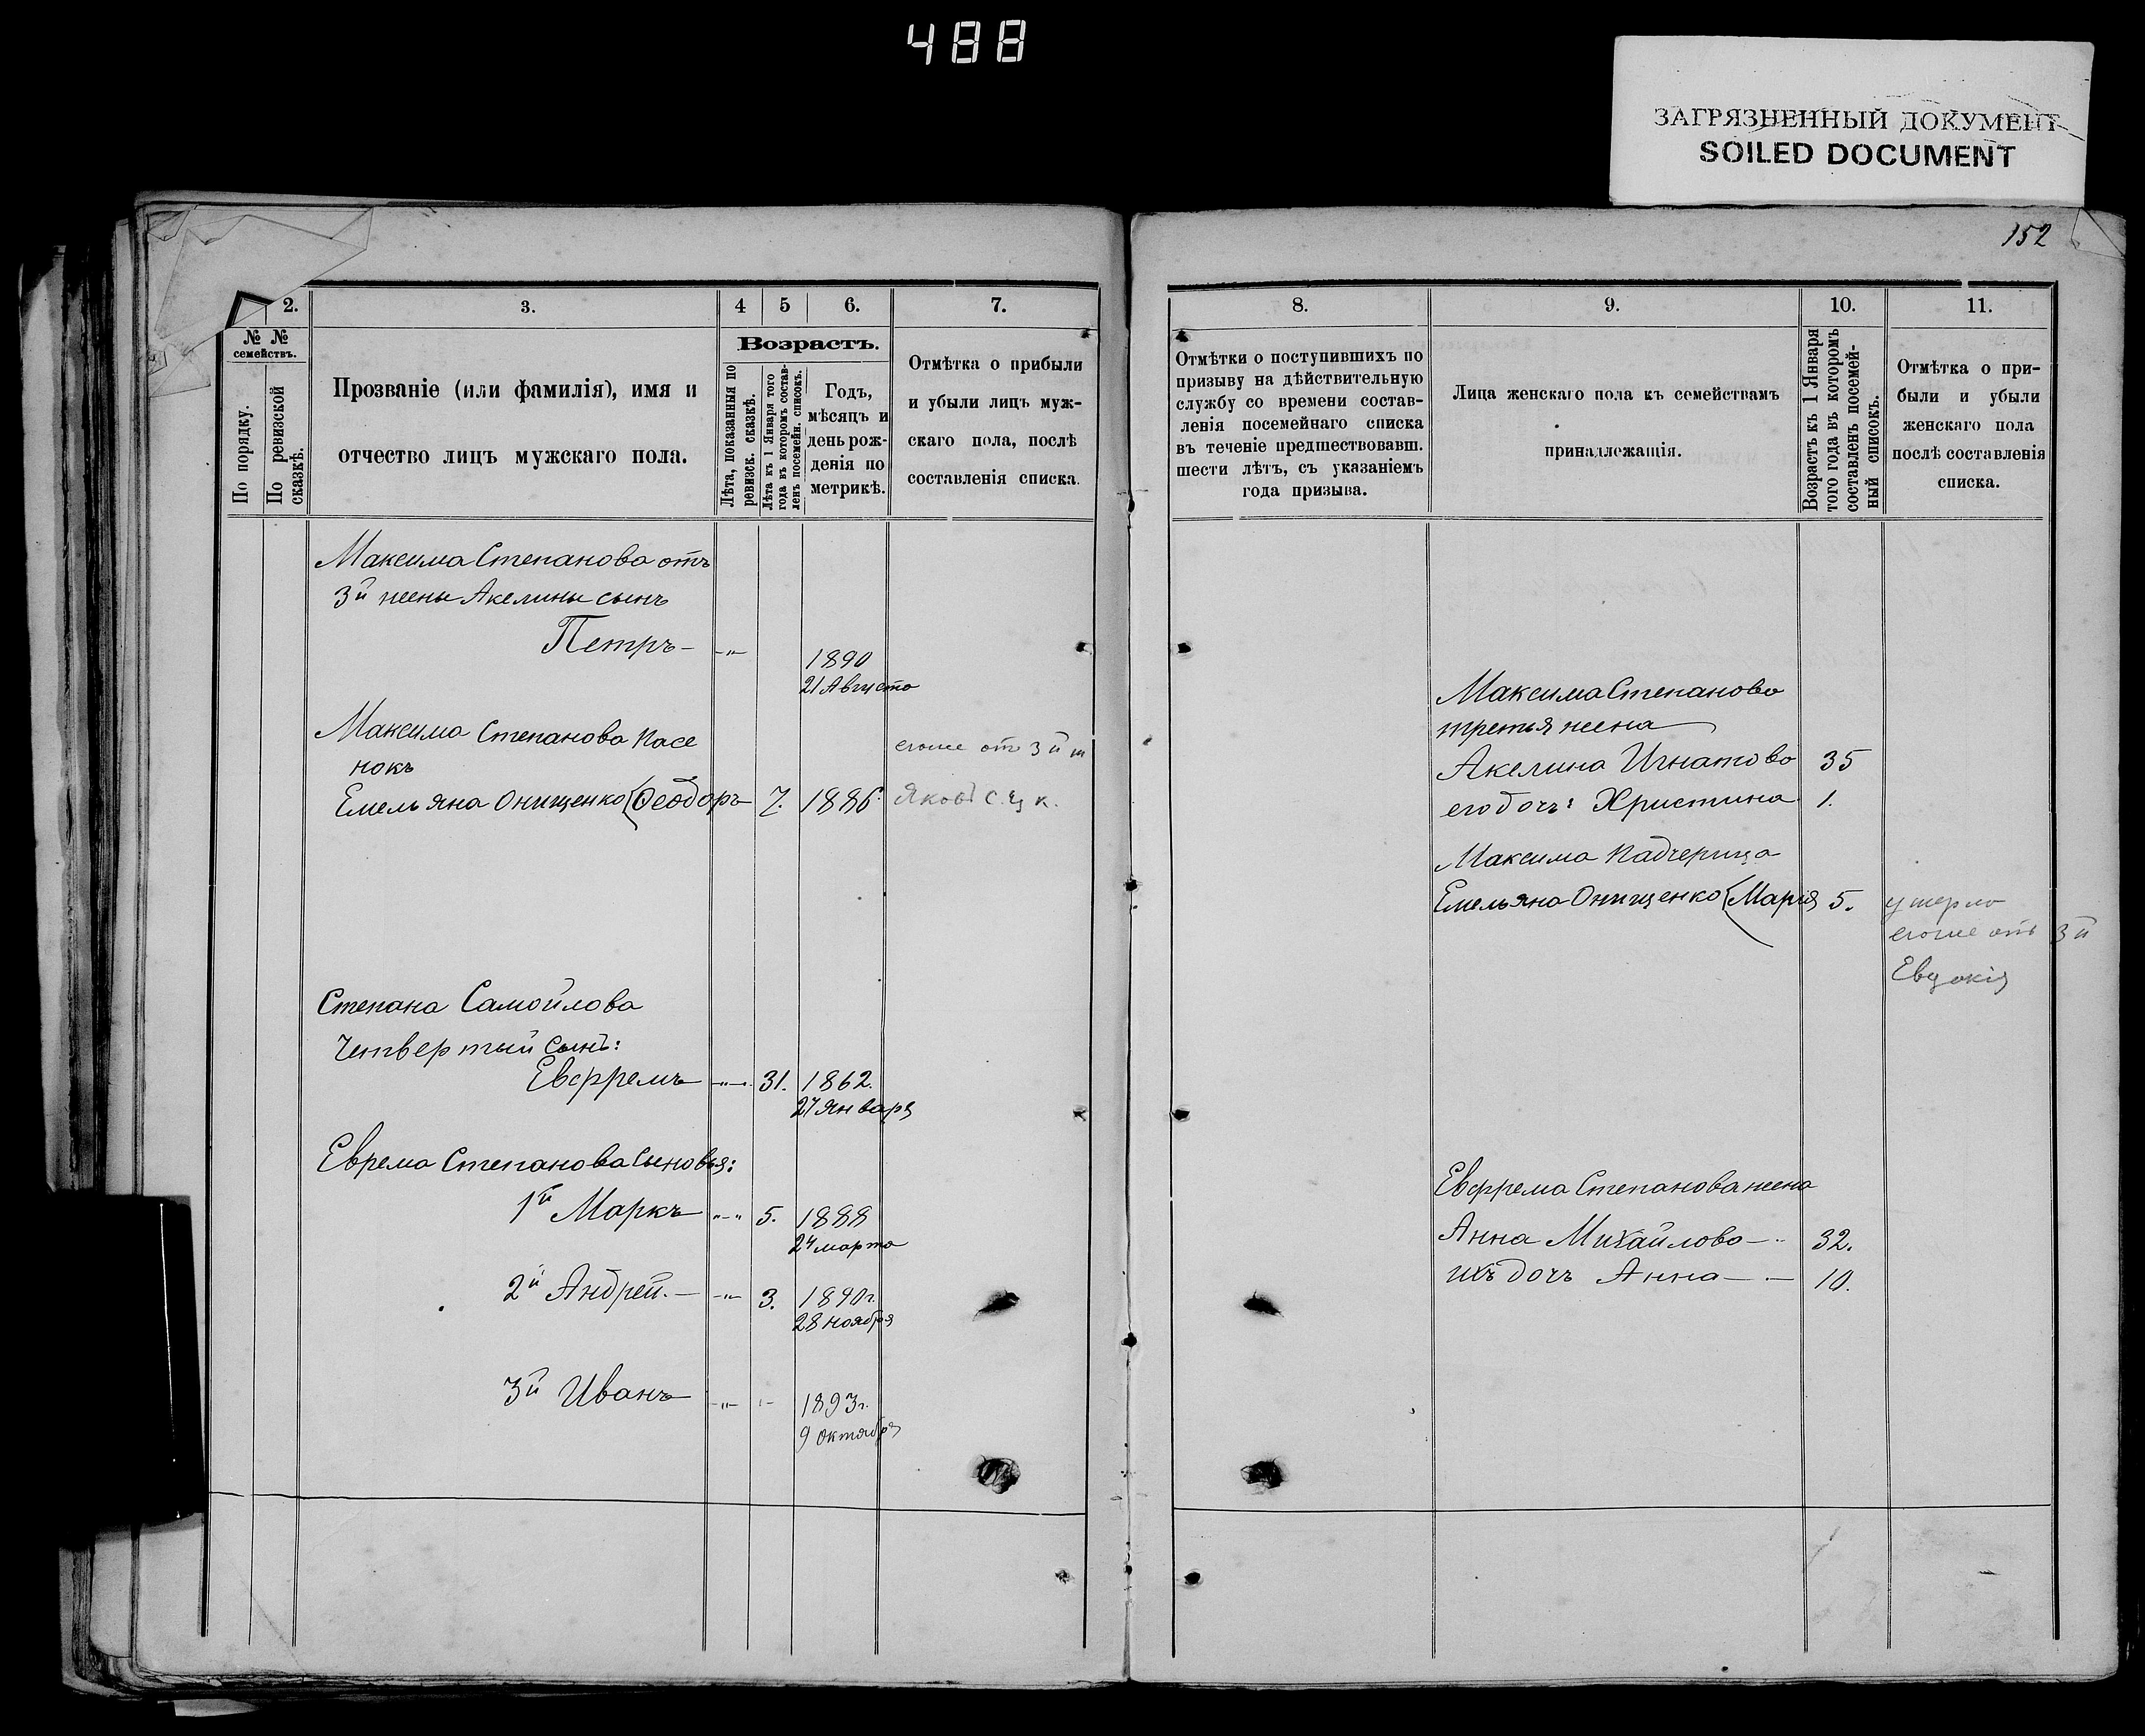 488
ЗАГРЯЗНЕННЫЙ ДОКУМЕНТ
SOILED DOCUMENT
152
2.
3.
4
5
6.
7.
№ №
семействъ.
По порядку.
По ревизской
сказкѣ.
Прозваніе (или фамилія), имя и
отчество лицъ мужскаго пола.
Возрастъ.
Лѣта, показанныя по
ревизск. сказкѣ.
Лѣта къ 1 Января того
года въ которомъ состав-
ленъ посемейн. списокъ.
Годъ,
мѣсяцъ и
день рож-
денія по
метрикѣ.
Отмѣтка о прибыли
и убыли лицъ муж-
скаго пола, послѣ
составленія списка.
Максима Степанова отъ
3й жены Акелины сынъ
Петръ
1890
21 Августа
Максима Степанова пасе
нокъ
Емельяна Онищенко (Ѳеодоръ 7. 1886.
егоже отъ 3й
Яковъ
Степана Самойлова
Четвертый сынъ:
Евфремъ 31. 1862.
27 января
Еврема Степанова сыновья:
1й Маркъ 5. 1888
24 марта
2й Андрей. 3. 1890г.
28 ноября
3й Иванъ 1893г.
9 октября
8.
9.
10.
11.
Отмѣтки о поступившихъ по
призыву на дѣйствительную
службу со времени состав-
ленія посемейнаго списка
въ теченіе предшествовавш.
шести лѣтъ, съ указаніемъ
года призыва.
Лица женскаго пола къ семействамъ
принадлежащія.
Возрастъ къ 1 Января
того года въ которомъ
составленъ посемей-
ный списокъ.
Отмѣтка о при-
были и убыли
женскаго пола
послѣ составленія
списка.
Максима Степанова
третья жена
Акелина Игнатова 35
его дочь: Христина 1.
Максима падчерица
Емельяна Онищенко (Марія 5.
умерла
егоже отъ 3й
Евдокія
Евфрема Степанова жена
Анна Михайлова 32.
ихъ дочь Анна 10.